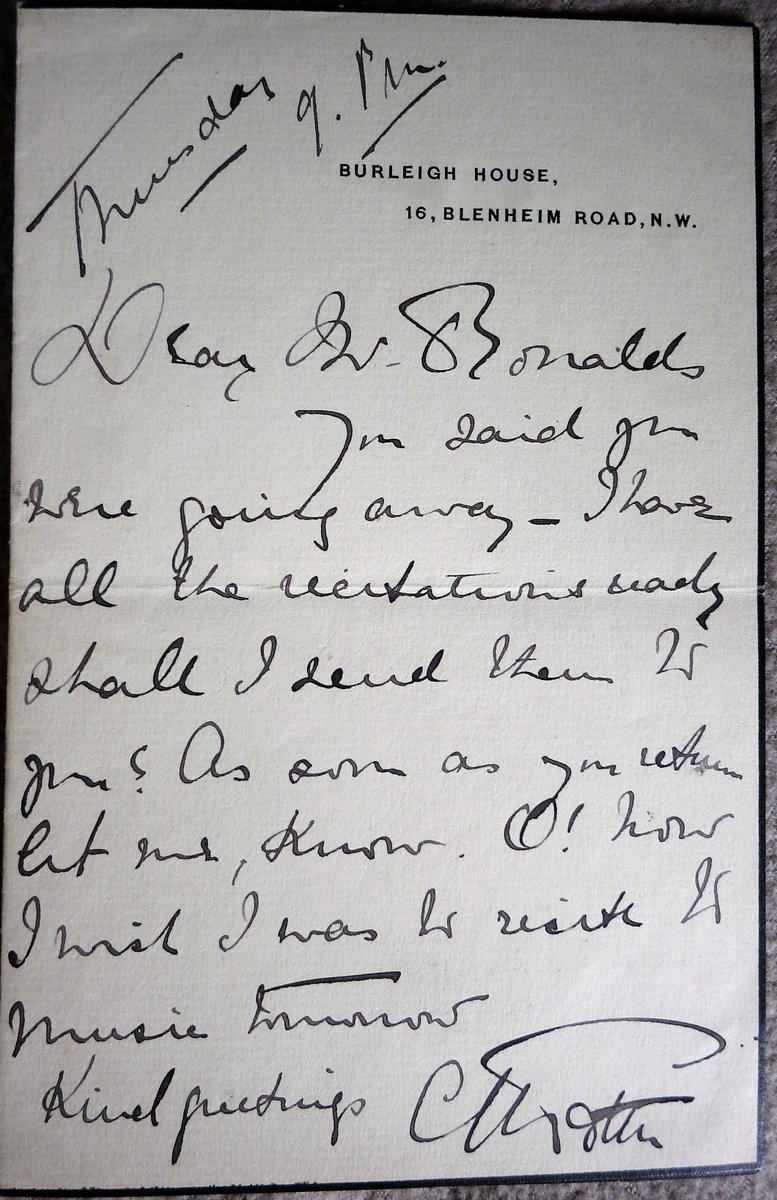 Thursday 9. Pm.
BURLEIGH HOUSE,
16, BLENHEIM ROAD, N.W.
Dear Mr. Ronalds
You said you
were going away – I have
all the recitations ready
shall I send them to
you? As soon as you return
let me, know. O! how
I wish I was to recite to
music tomorrow
Kind greetings